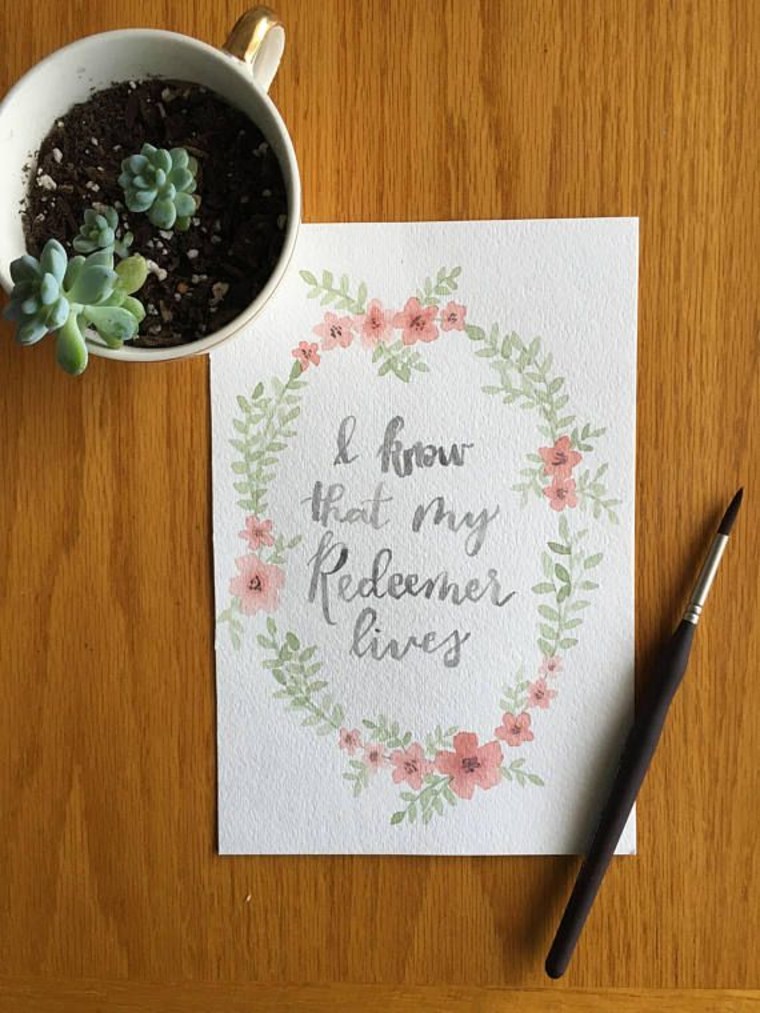 I know
that my
Redeemer
lives